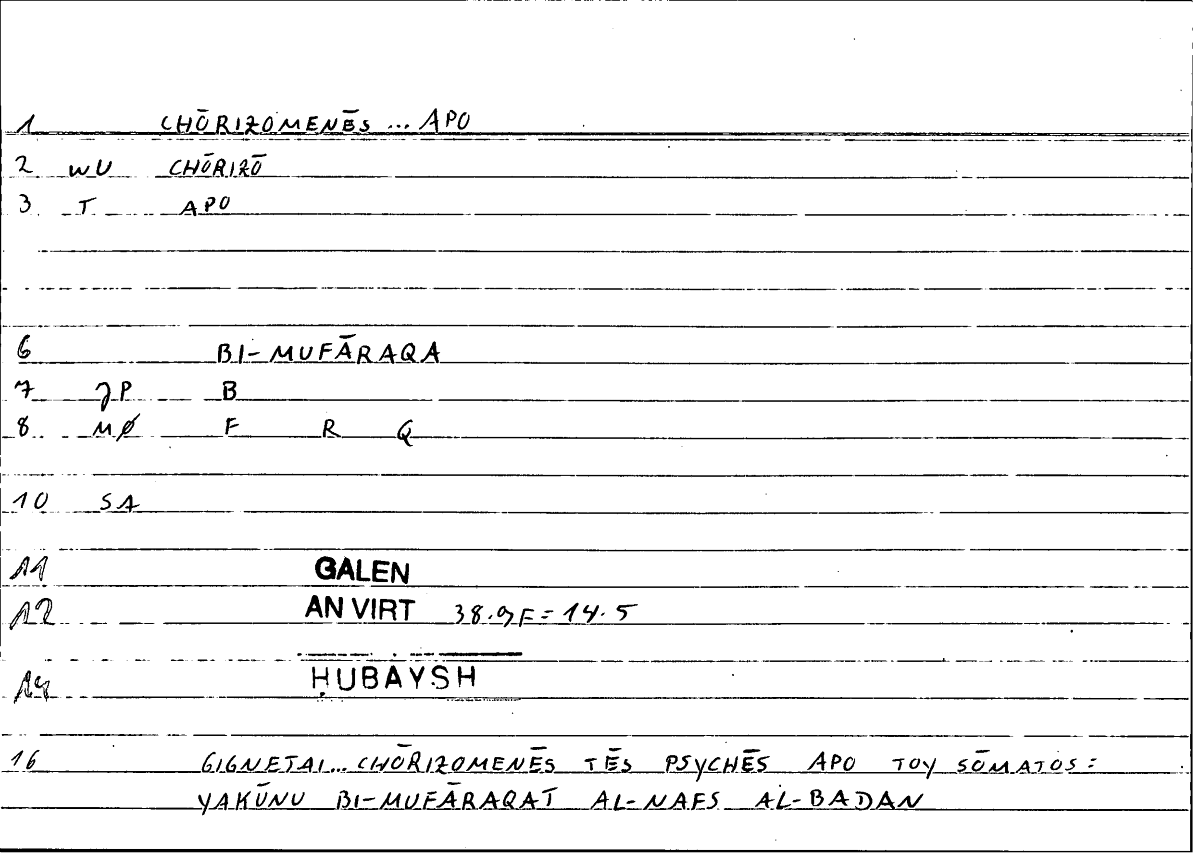 1 CHŌRIZOMENĒS ... APO
2 WU CHŌRIZŌ
3 T APO
6 BI-MUFĀRAQA
7 P B
8 MØ F R Q
10 SA
11 GALEN
12 AN VIRT 38.9F = 14.5
14 ḤUBAYSH
16 GIGNETAI... CHŌRIZOMENĒS TĒS PSYCHĒS APO TOY SŌMATOS:
YAKŪNU BI-MUFĀRAQAT AL-NAFS AL-BADAN